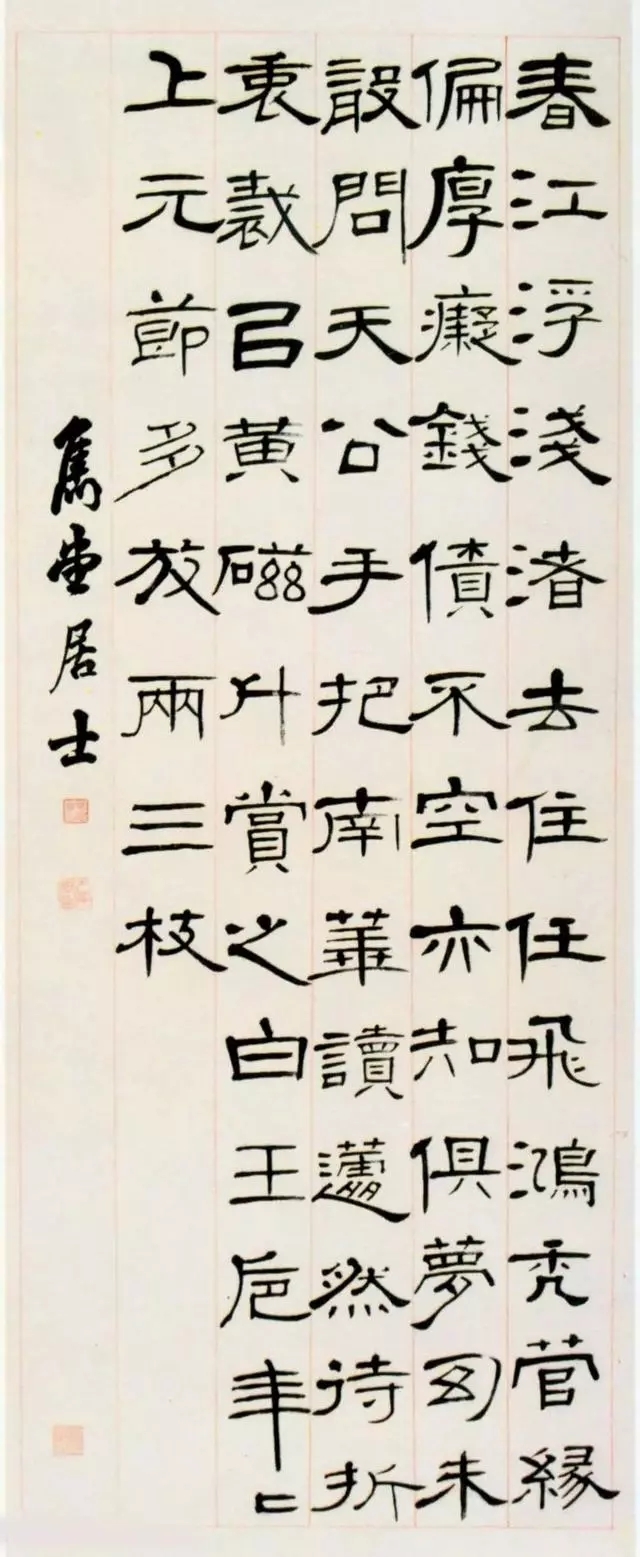 春江浮淺渚去住任飛鴻禿菅緣
偏厚癡錢債不空亦知俱夢幻未
敢問天公手把南華讀蘧然待折
衷裁㠯黃磁斗賞之白玉卮年二
上元節多放兩三枝
居士